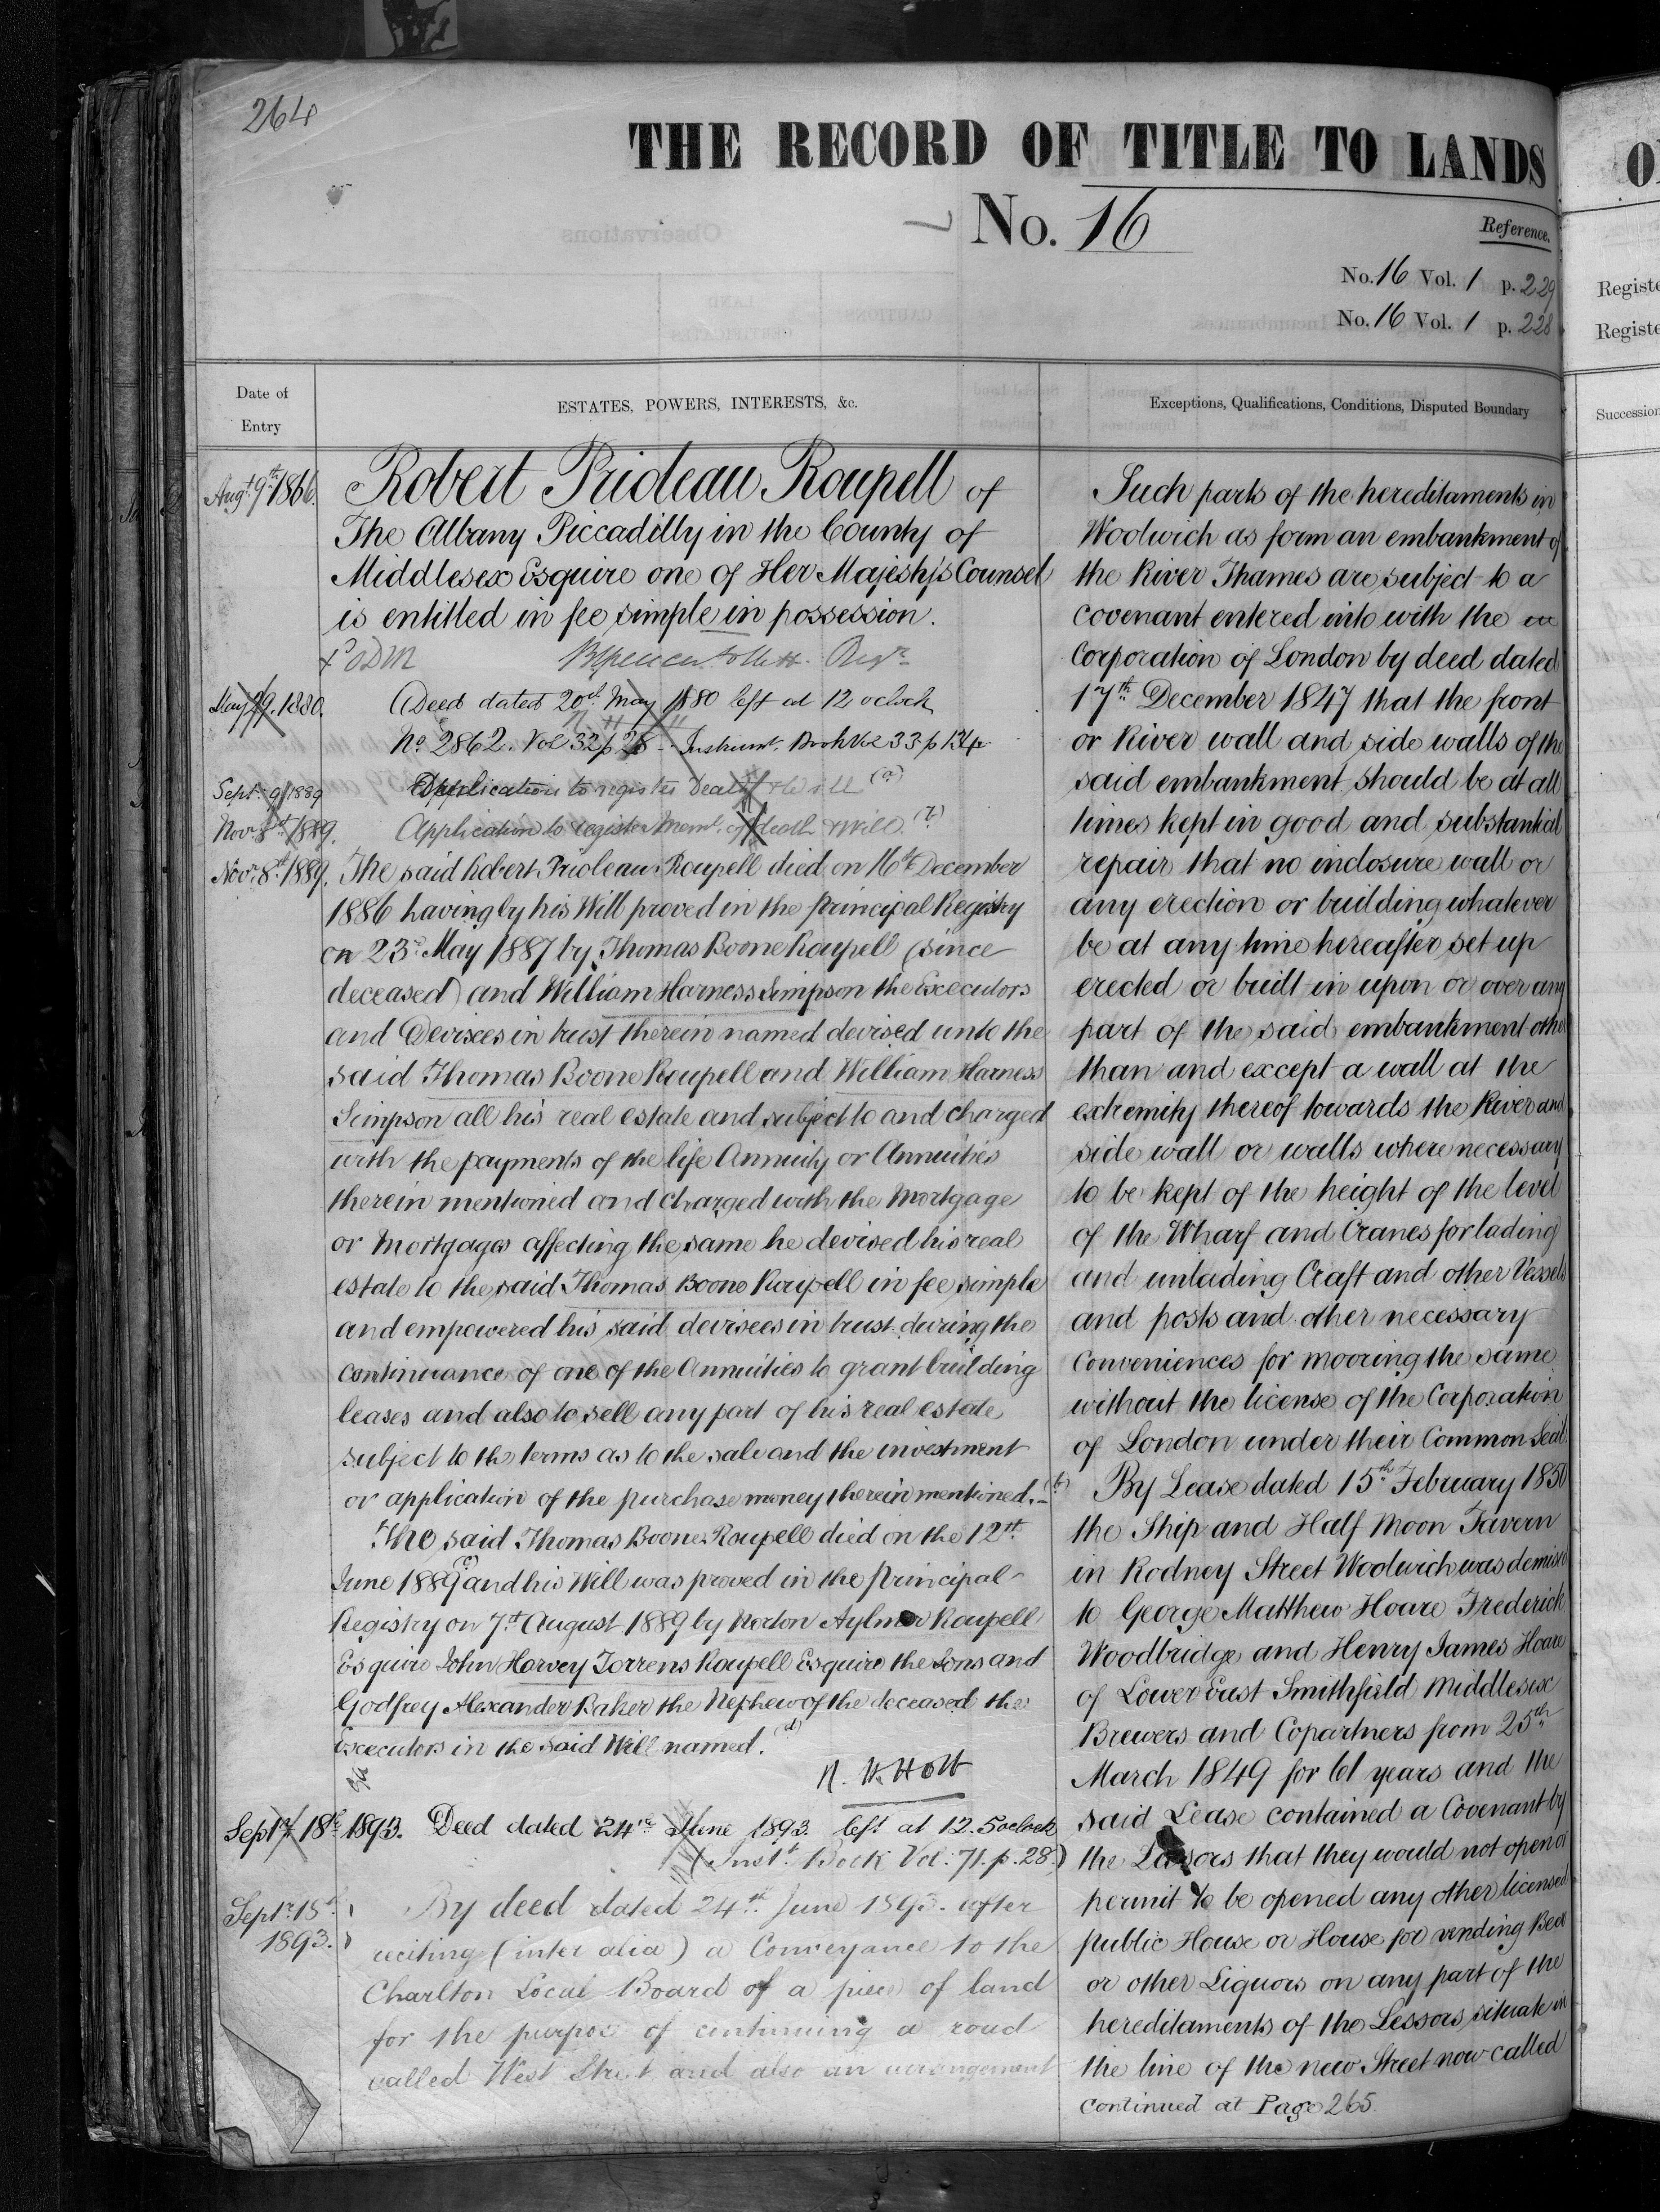 264
THE RECORD OF TITLE TO LANDS
No. 16
Reference.
No. 16 Vol. 1 p. 229
No. 16 Vol. 1 p. 228
Date of
Entry
ESTATES, POWERS, INTERESTS, &c.
Augt. 9th 1866.
Robert Prioleau Roupell of
The Albany Piccadilly in the County of
Middlesex Esquire one of Her Majesty's Counsel
is entitled in fee simple in possession.
Regr
May 29. 1880.
Deed dated 20th May 1880 left at 12 oclock
No. 2862. Vol 32 p 28 - Instrumt. Book Vol 33. p 134
Sept. 9/1889
Application to register Death & Will (a)
Novr. 8th/1889.
Application to register Memt. of death & Will. (b)
Novr. 8th 1889.
The said Robert Prioleau Roupell died on 16th December
1886 having by his Will proved in the Principal Registry
on 23rd May 1887 by Thomas Boone Roupell (since
deceased) and William Harness Simpson the Executors
and Devisees in trust therein named devised unto the
said Thomas Boone Roupell and William Harness
Simpson all his real estate and subject to and charged
with the payments of the life Annuity or Annuities
therein mentioned and charged with the Mortgage
or Mortgages affecting the same he devised his real
estate to the said Thomas Boone Roupell in fee simple
and empowered his said devisees in trust during the
continuance of one of the Annuities to grant building
leases and also to sell any part of his real estate
subject to the terms as to the sale and the investment
or application of the purchase money therein mentioned. - (b)
The said Thomas Boone Roupell died on the 12th
June 1889 (c) and his Will was proved in the Principal
Registry on 7th August 1889 by Norton Aylmer Roupell
Esquire John Harvey Torrens Roupell Esquire the Sons and
Godfrey Alexander Baker the Nephew of the deceased the
Executors in the said Will named. (d)
R. H. Holt
Septr. 18th 1893. Deed dated 24th June 1893. left at 12.5 oclock
(Inst. Book Vol. 71. p. 28.)
Septr. 18th
1893.
By deed dated 24th June 1893. after
reciting (inter alia) a Conveyance to the
Charlton Local Board of a piece of land
for the purpose of continuing a road
called West Street and also an arrangement
Exceptions, Qualifications, Conditions, Disputed Boundary
Such parts of the hereditaments in
Woolwich as form an embankment of
the River Thames are subject to a
covenant entered into with the
Corporation of London by deed dated
17th December 1847 that the front
or River wall and side walls of the
said embankment should be at all
times kept in good and substantial
repair that no inclosure wall or
any erection or building whatever
be at any time hereafter set up
erected or built in upon or over any
part of the said embankment other
than and except a wall at the
extremity thereof towards the River and
side wall or walls where necessary
to be kept of the height of the level
of the Wharf and Cranes for lading
and unlading Craft and other Vessels
and posts and other necessary
conveniences for mooring the same
without the license of the Corporation
of London under their Common Seal.
By Lease dated 15th February 1850
the Ship and Half Moon Tavern
in Rodney Street Woolwich was demised
to George Matthew Hoare Frederick
Woodbridge and Henry James Hoare
of Lower East Smithfield Middlesex
Brewers and Copartners from 25th
March 1849 for 61 years and the
said Lease contained a Covenant by
the Lessors that they would not open or
permit to be opened any other licensed
public House or House for vending Beer
or other Liquors on any part of the
hereditaments of the Lessors situate in
the line of the new Street now called
continued at Page 265.
Registe
Registe
Succession